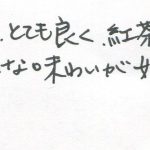 .とても良く.紅茶
な味わいが